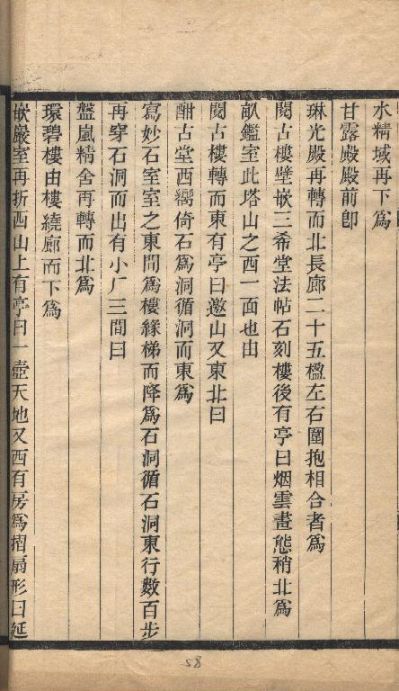 水精域再下爲
甘露殿殿前卽
琳光殿再轉而北長廊二十五楹左右圍抱相合者爲
閱古樓壁嵌三希堂法帖石刻樓後有亭曰烟雲畫態稍北爲
畝鑑室此塔山之西一面也由
閱古樓轉而東有亭曰邀山又東北曰
酣古堂西嚮倚石爲洞循洞而東爲
寫妙石室室之東間爲樓緣梯而降爲石洞循石洞東行數百步
再穿石洞而出有小厂三間曰
盤嵐精舍再轉而北爲
環碧樓由樓繞廊而下爲
嵌巖室再折西山上有亭曰一壺天地又西有房爲摺扇形曰延
58